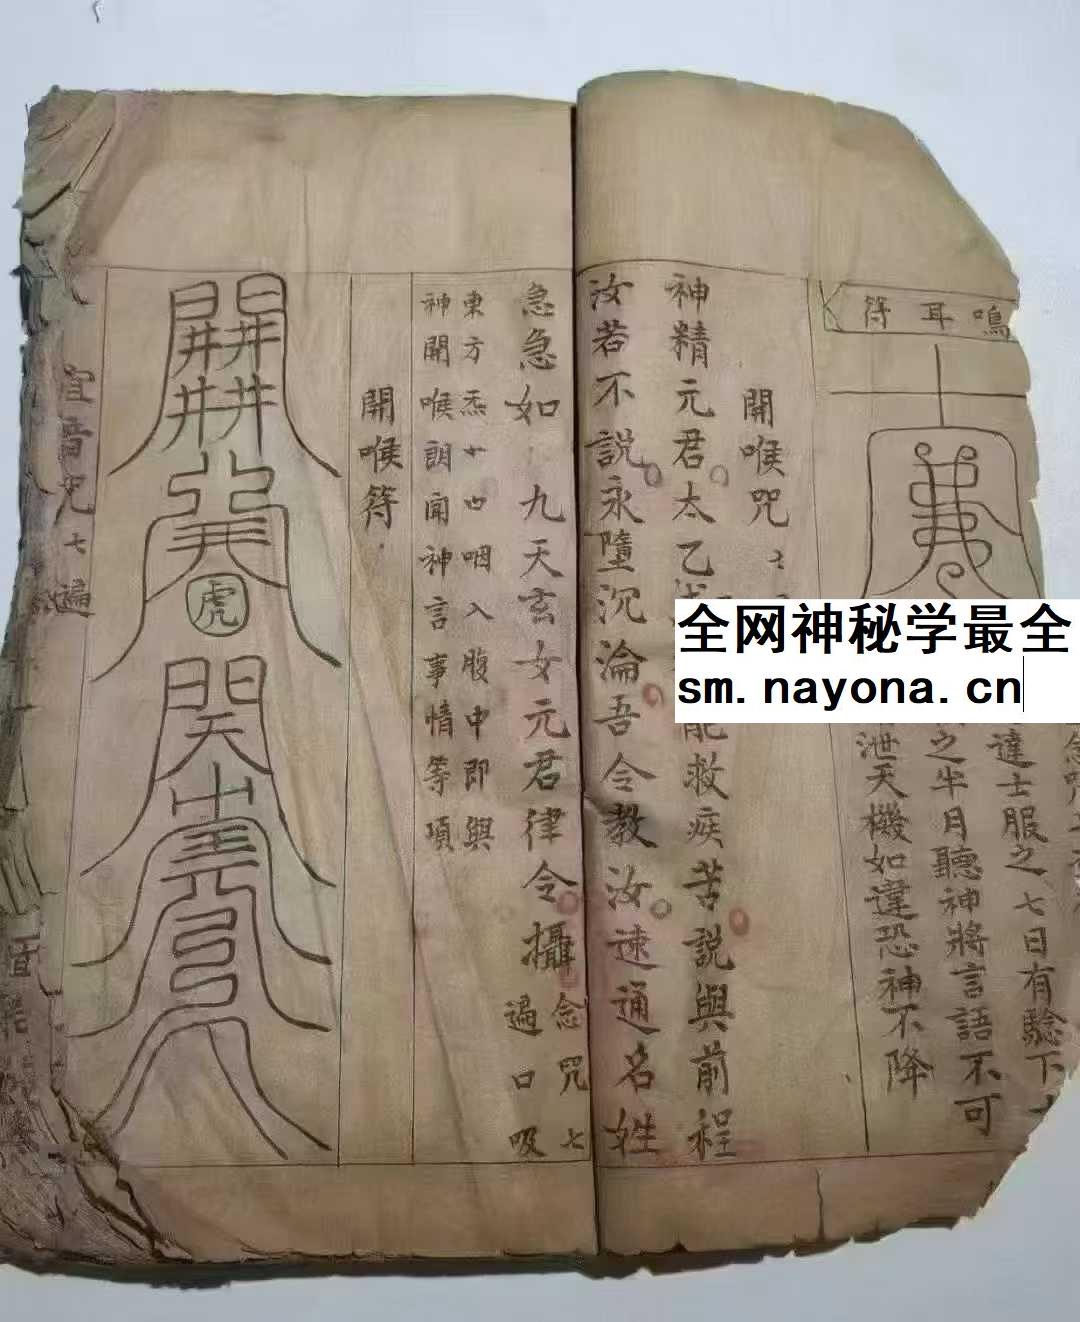 鳴耳符
達士服之七日有驗下
之半月聽神將言語不可
泄天機如違恐神不降
開喉咒
神精元君太乙
能救疾苦説與前程
汝若不説永墮沉淪吾令教汝速通名姓
急急如九天玄女元君律令攝
念咒七
遍口吸
東方炁十口咽入腹中即與
神開喉朗聞神言事情等項
開喉符
開
井井
井井
虎
関
宜音咒七遍
全网神秘学最全
sm.nayona.cn